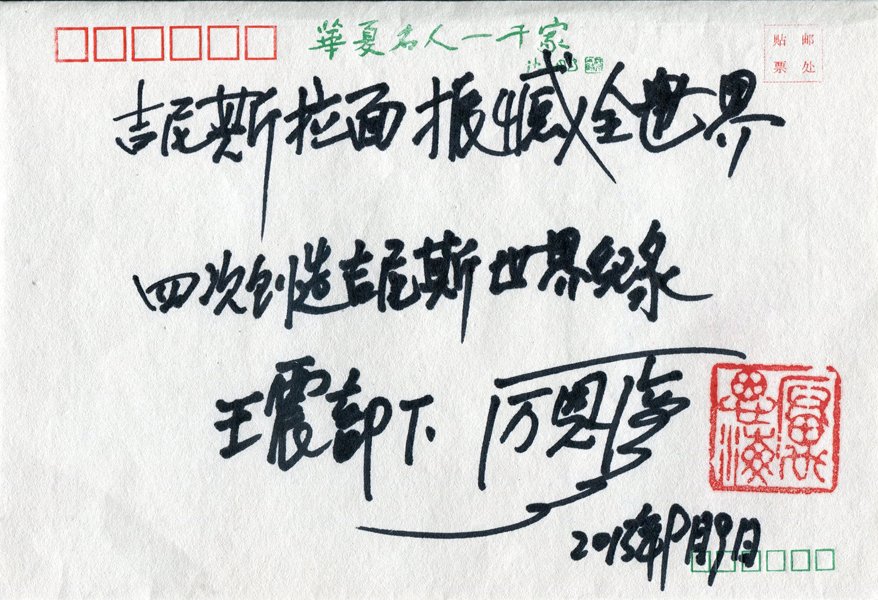 華夏名人一千家
贴 邮
票 处
吉尼斯拉面振憾全世界
四次创造吉尼斯世界纪录
王震部下 厉恩海
2015年 月9日